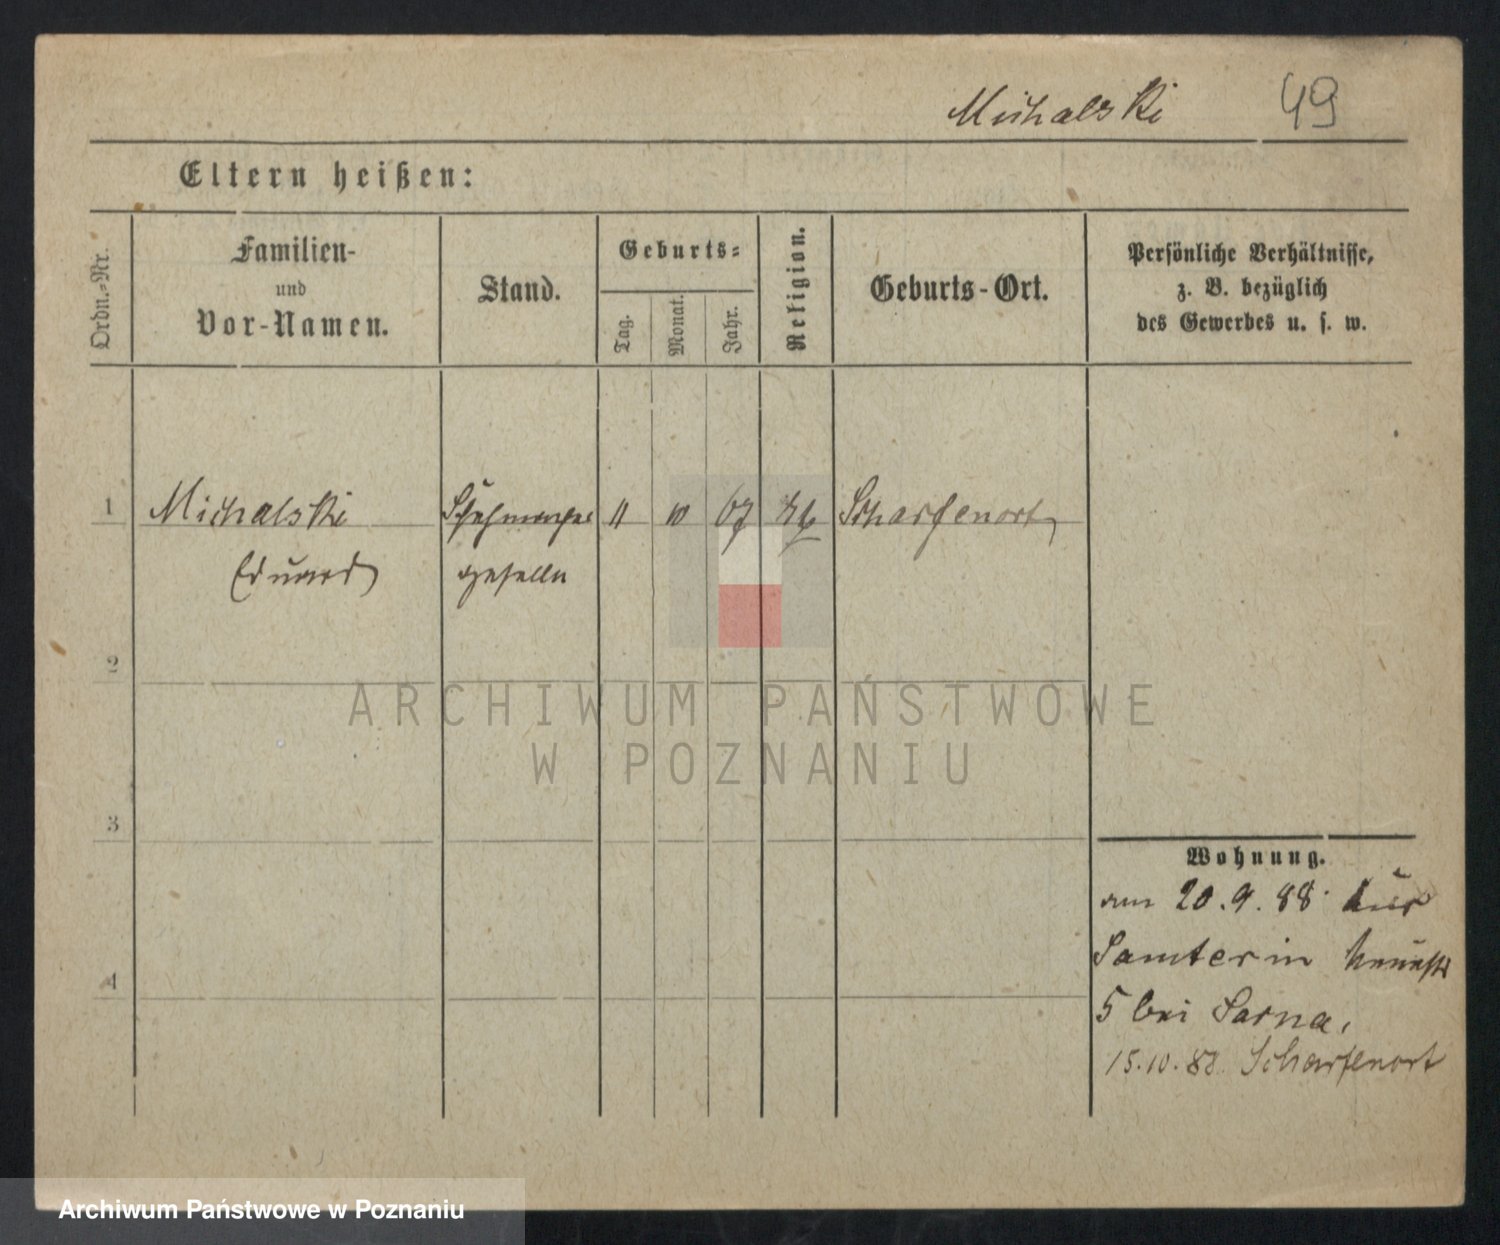 Michalski 49
Eltern heißen:
Ordn.-Nr.
Familien-
und
Vor-Namen.
Stand.
Geburts-
Tag.
Monat.
Jahr.
Religion.
Geburts-Ort.
Persönliche Verhältnisse,
z. B. bezüglich
des Gewerbes u. s. w.
1 Michalski Schuhmacher 11 10 67 Scharfenort
Eduard geselle
2
3
4
Wohnung.
am 20.9.88. aus
Samter in
5 bei Sarna.
15.10.88 Scharfenort
ARCHIWUM PAŃSTWOWE
W POZNANIU
Archiwum Państwowe w Poznaniu